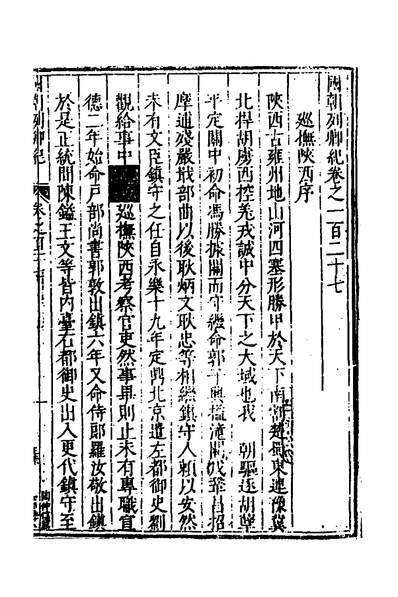 國朝列卿紀卷之一百二十七
巡撫陝西序
陝西古雍州地山河四塞形勝甲於天下南 楚蜀東連豫冀
北捍胡虜西控羗戎誠中分天下之大域也我 朝驅逐胡孽
平定關中初命馮勝據關而守繼命郭子興搤潼關 招
摩逋殘嚴戢部曲以後耿炳文耿忠等相繼鎮守人賴以安然
未有文臣鎮守之任自永樂十九年定鼎北京遣左都御史劉
觀給事中 巡撫陝西考察官吏然事畢則止未有專職宣
德二年始命戶部尚書郭敦出鎮六年又命侍郎羅汝敬出鎮
於是正統間陳鎰王文等皆內臺右都御史出入更代鎮守至